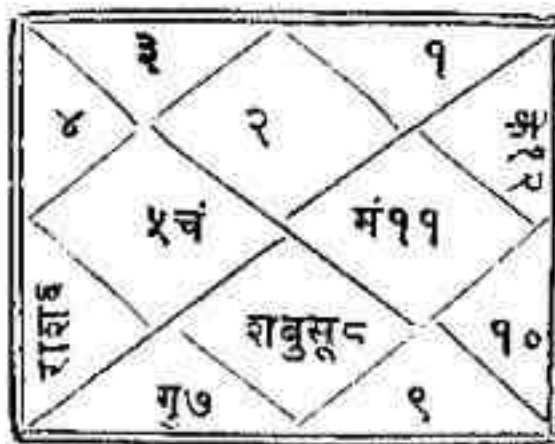 ३
१
४
२
५चं
मं११
राश६
शबुसू८
१०
गु७
९